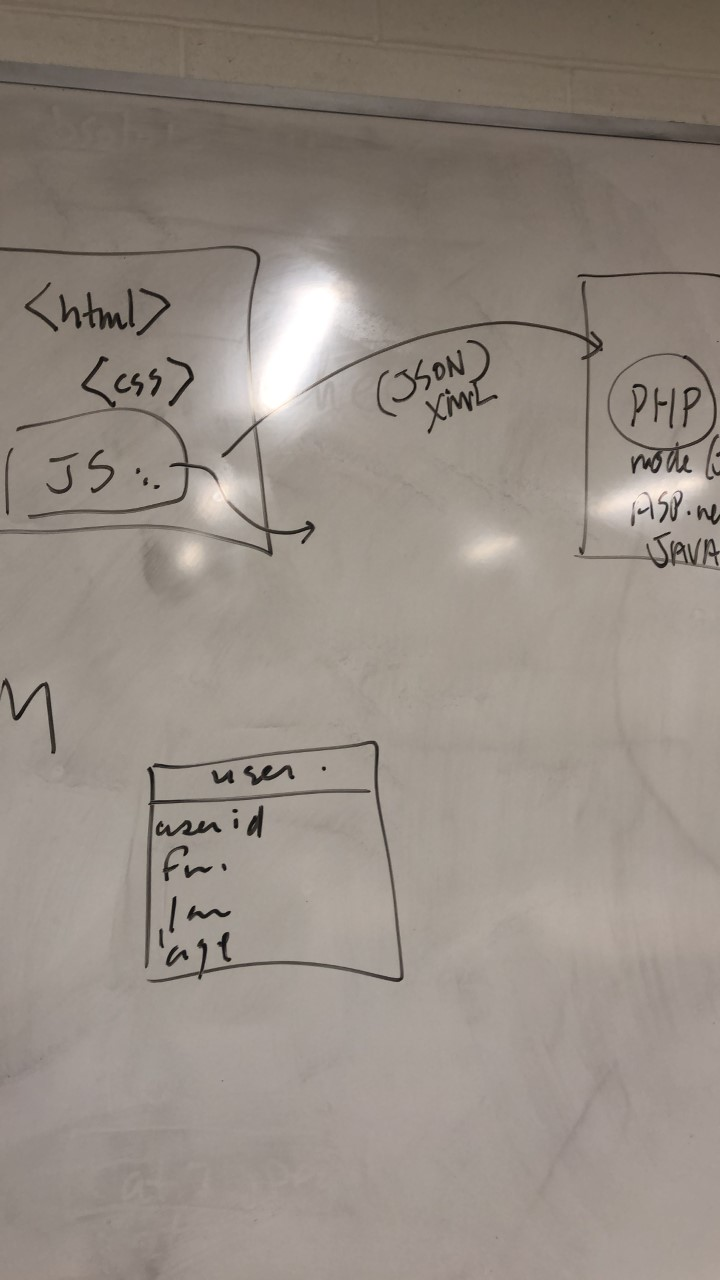 <html>
<css>
JS
(JSON)
XML
PHP
node (J
ASP.ne
JAVA
M
user
userid
fn.
ln
age